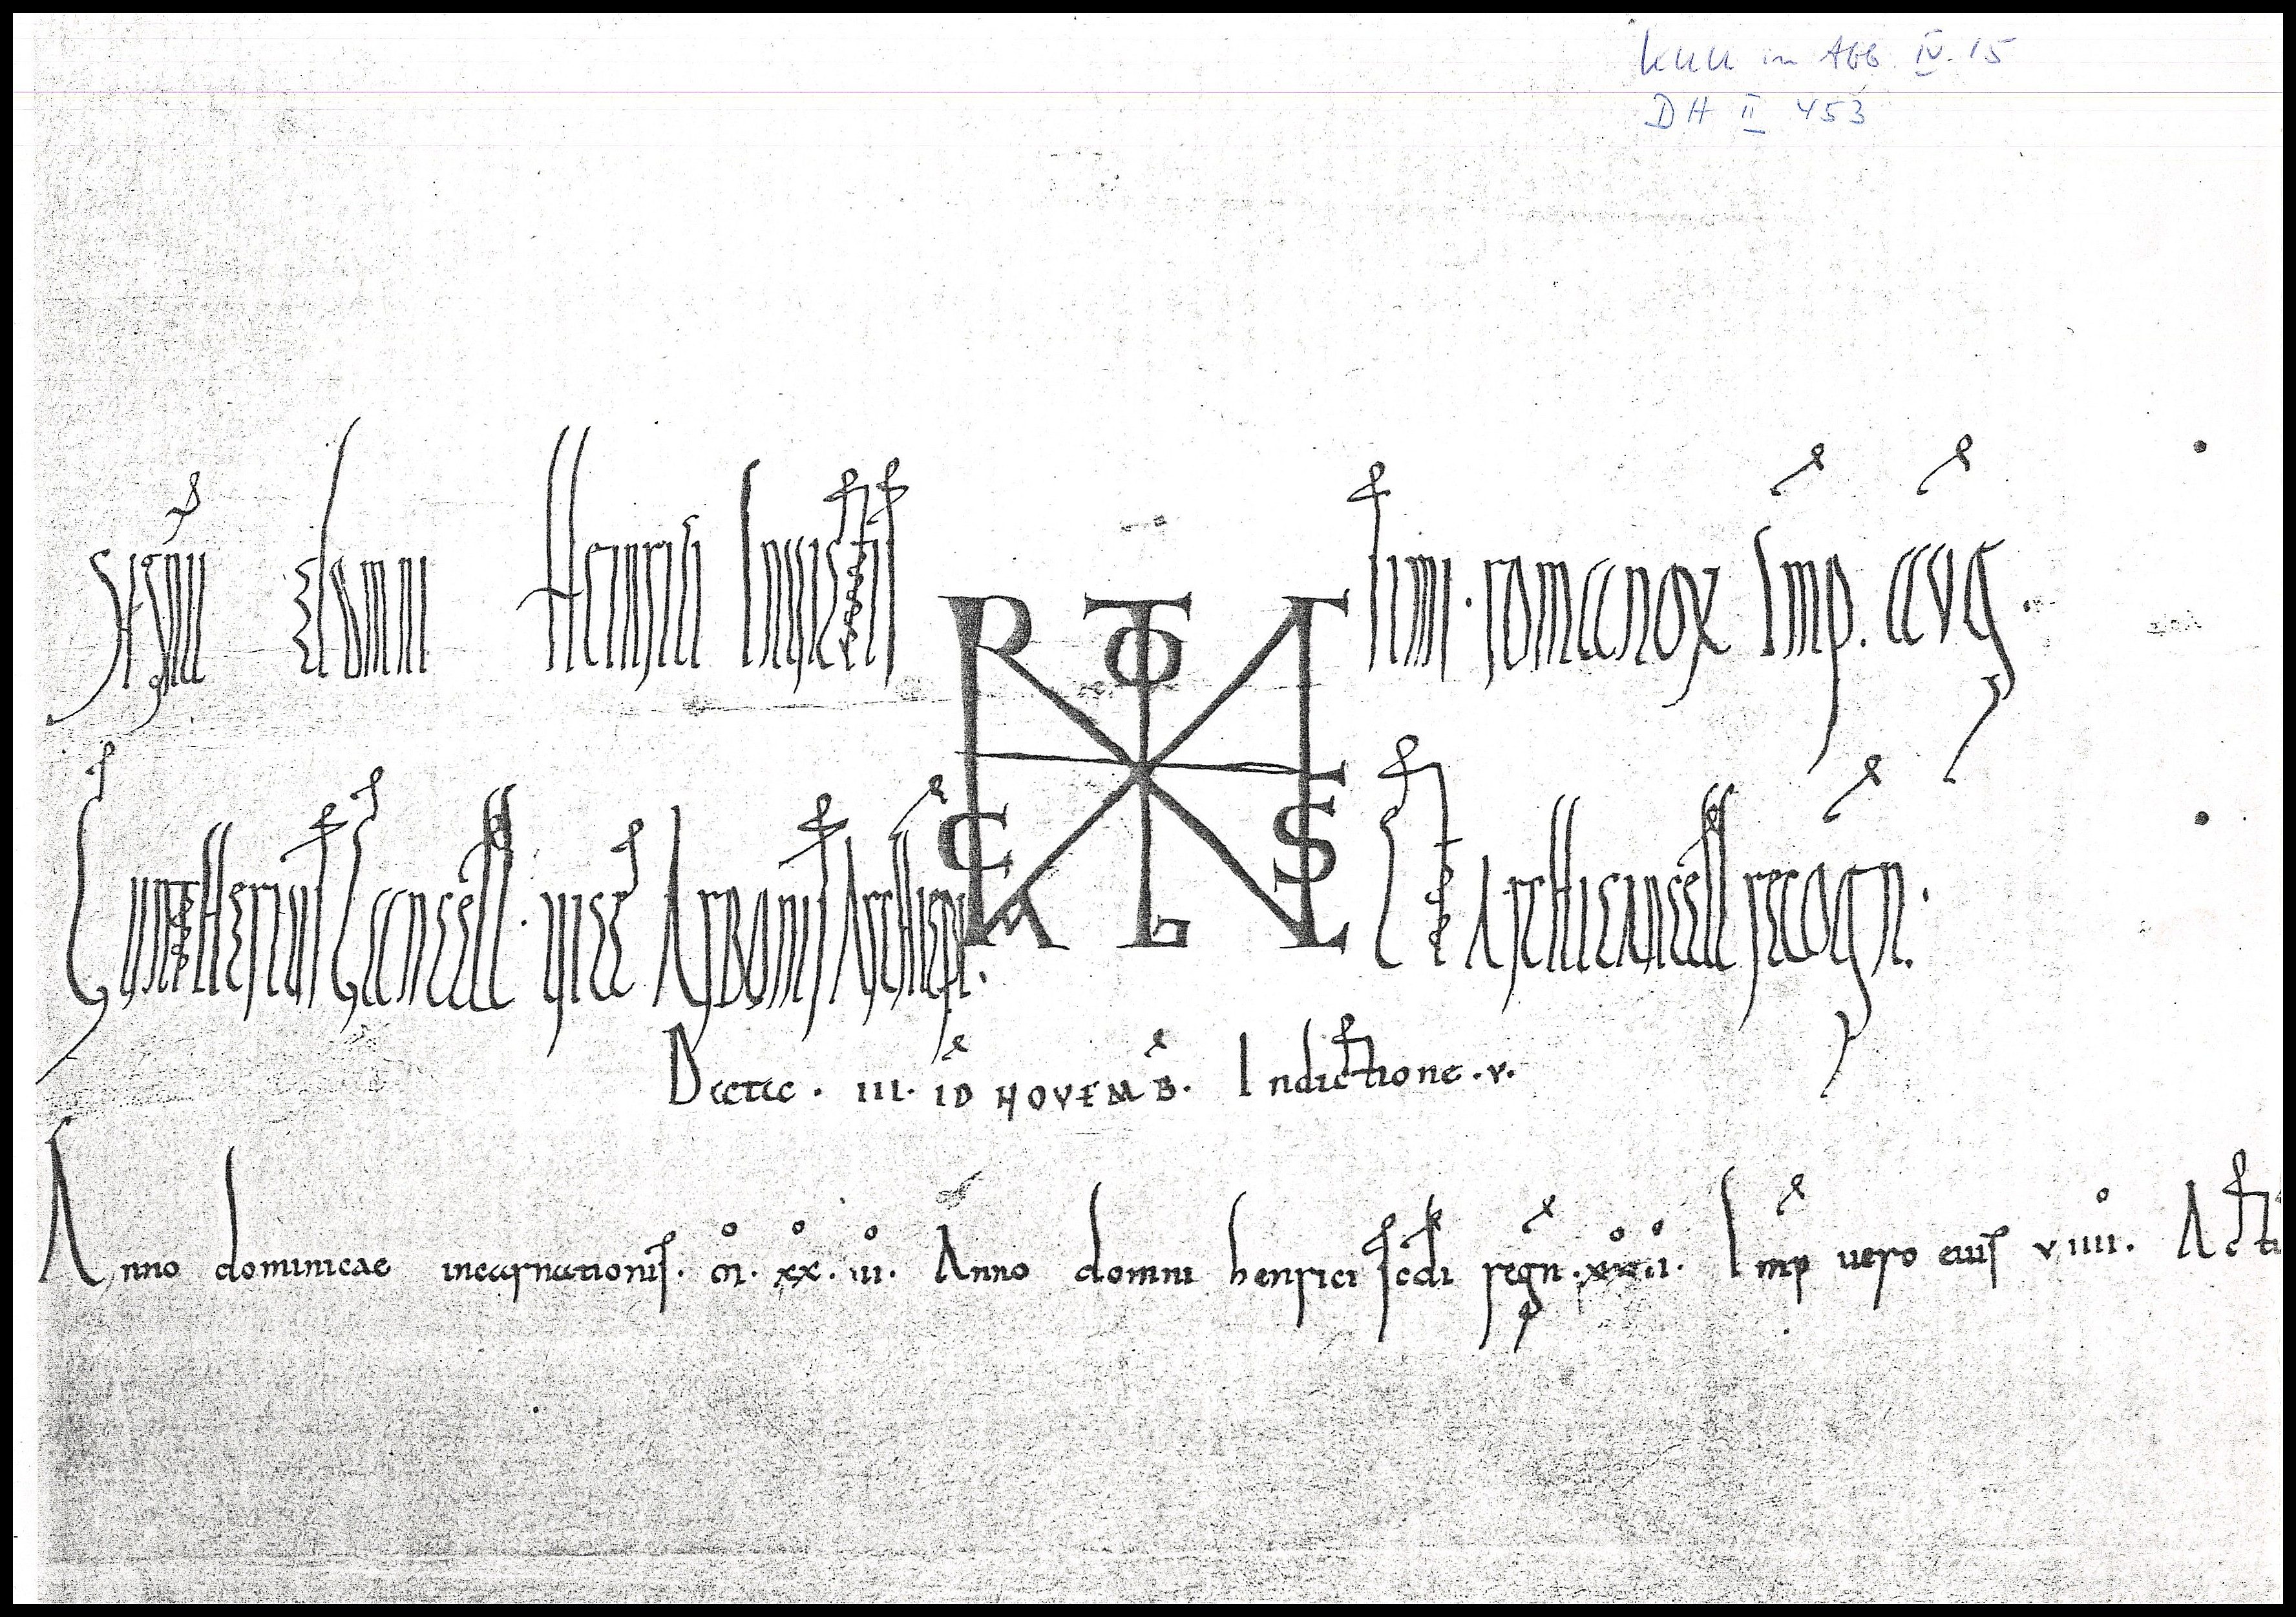 KUU in Abb IV. 15
DH II 453
Signū domni Heinrici Inuictiſ
ſimi. romanoꝝ Imp. aug.
Guntheriuſ Cancell. uice Arboniſ Archiepī.
Et Archicancell recogn.
Data. III. ID NOVEMB. Indictione. v.
Anno dominicae incarnationiſ. m̊. xx̊. iii̊. Anno domni henrici ſcdi regn. Imp uero eiuſ viiii̊. Acti